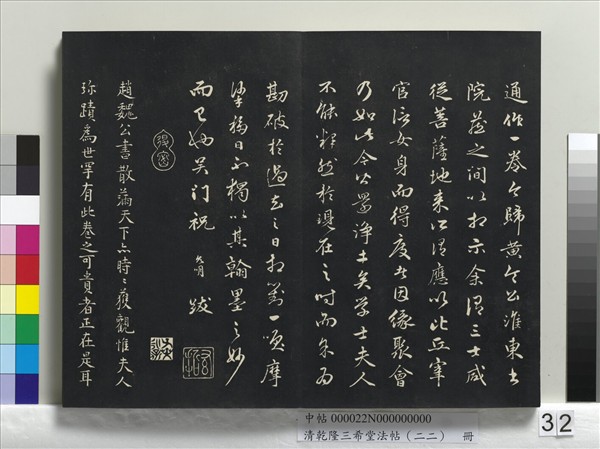 通作一卷今歸黃令公淮東書
院蓋之間以相示余謂三士咸
從菩薩地来所謂應以比丘宰
官信女身而得度者因緣聚會
乃如此今公當淨土矣學士夫人
不能釋然於現在之時而尔為
勘破於過去之日相對一噱摩
挲橋日不獨以其翰墨之妙
而已也吳門祝允明跋
趙魏公書散滿天下亦時時獲觀惟夫人
珎蹟為世罕有此卷之可貴者正在是耳
中帖 000022N000000000
清乾隆三希堂法帖（二二） 冊
32